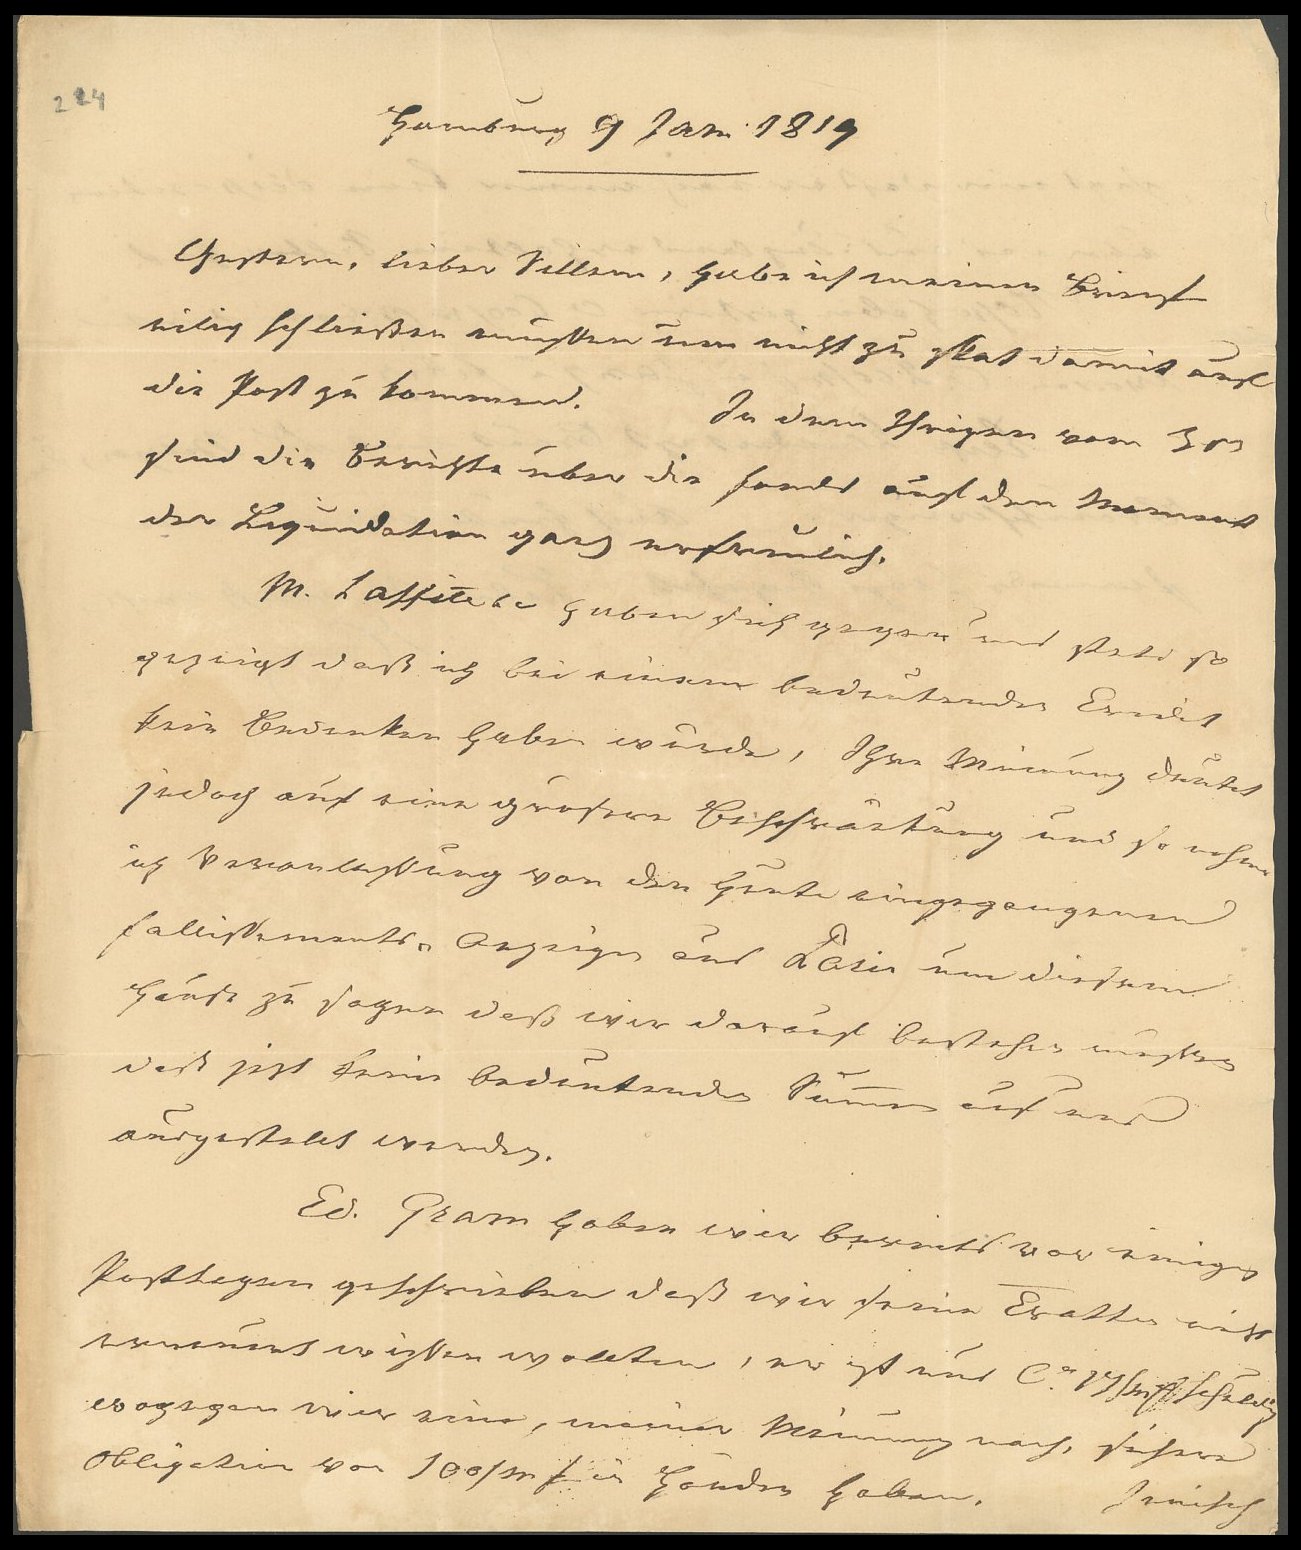 224
Hamburg 9 Jan 1819
Gestern, lieber Sillem, habe ich meinen Brief
eilig schließen müssen um nicht zu spät damit auf
die Post zu kommen. In dem Ihrigen vom
sind die Berichte über die fonds auf den Moment
der Liquidation ganz erfreulich.
M. Laffitte haben sich gegen uns stets so
gezeigt daß ich bei einem bedeutenden Credit
kein Bedenken haben würde, Ihre Meinung deutet
jedoch auf eine größere und so nehme
ich Veranlassung von den heute eingegangenen
fallissements Anzeigen aus Paris um diesem
Hause zu sagen daß wir darauf bestehen müssen
daß jezt keine bedeutende Summe auf uns
ausgestellt werden.
Ed. Gram haben wir bereits vor einigen
Posttagen geschrieben daß wir seine Tratten nicht
erneuert wissen wollten, er ist uns schuldig
wogegen wir eine, meiner Meinung nach, sichere
Obligation von 100/m in Händen haben. Jenisch